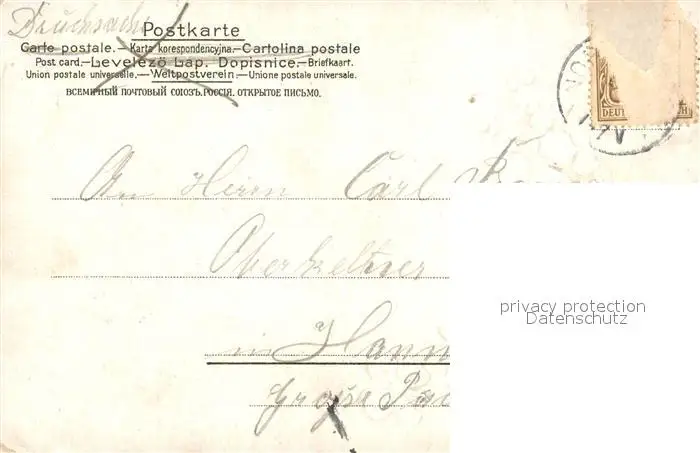 Drucksache
Postkarte
Carte postale.—Karta korespondencyjna.—Cartolina postale
Post card.—Levelező Lap. Dopisnice.—Briefkaart.
Union postale universelle.—Weltpostverein.—Unione postale universale.
ВСЕМІРНЫЙ ПОЧТОВЫЙ СОЮЗЪ. РОССІЯ. ОТКРЫТОЕ ПИСЬМО.
An Herrn Carl
Oberkellner
in Hann
Große
privacy protection
Datenschutz